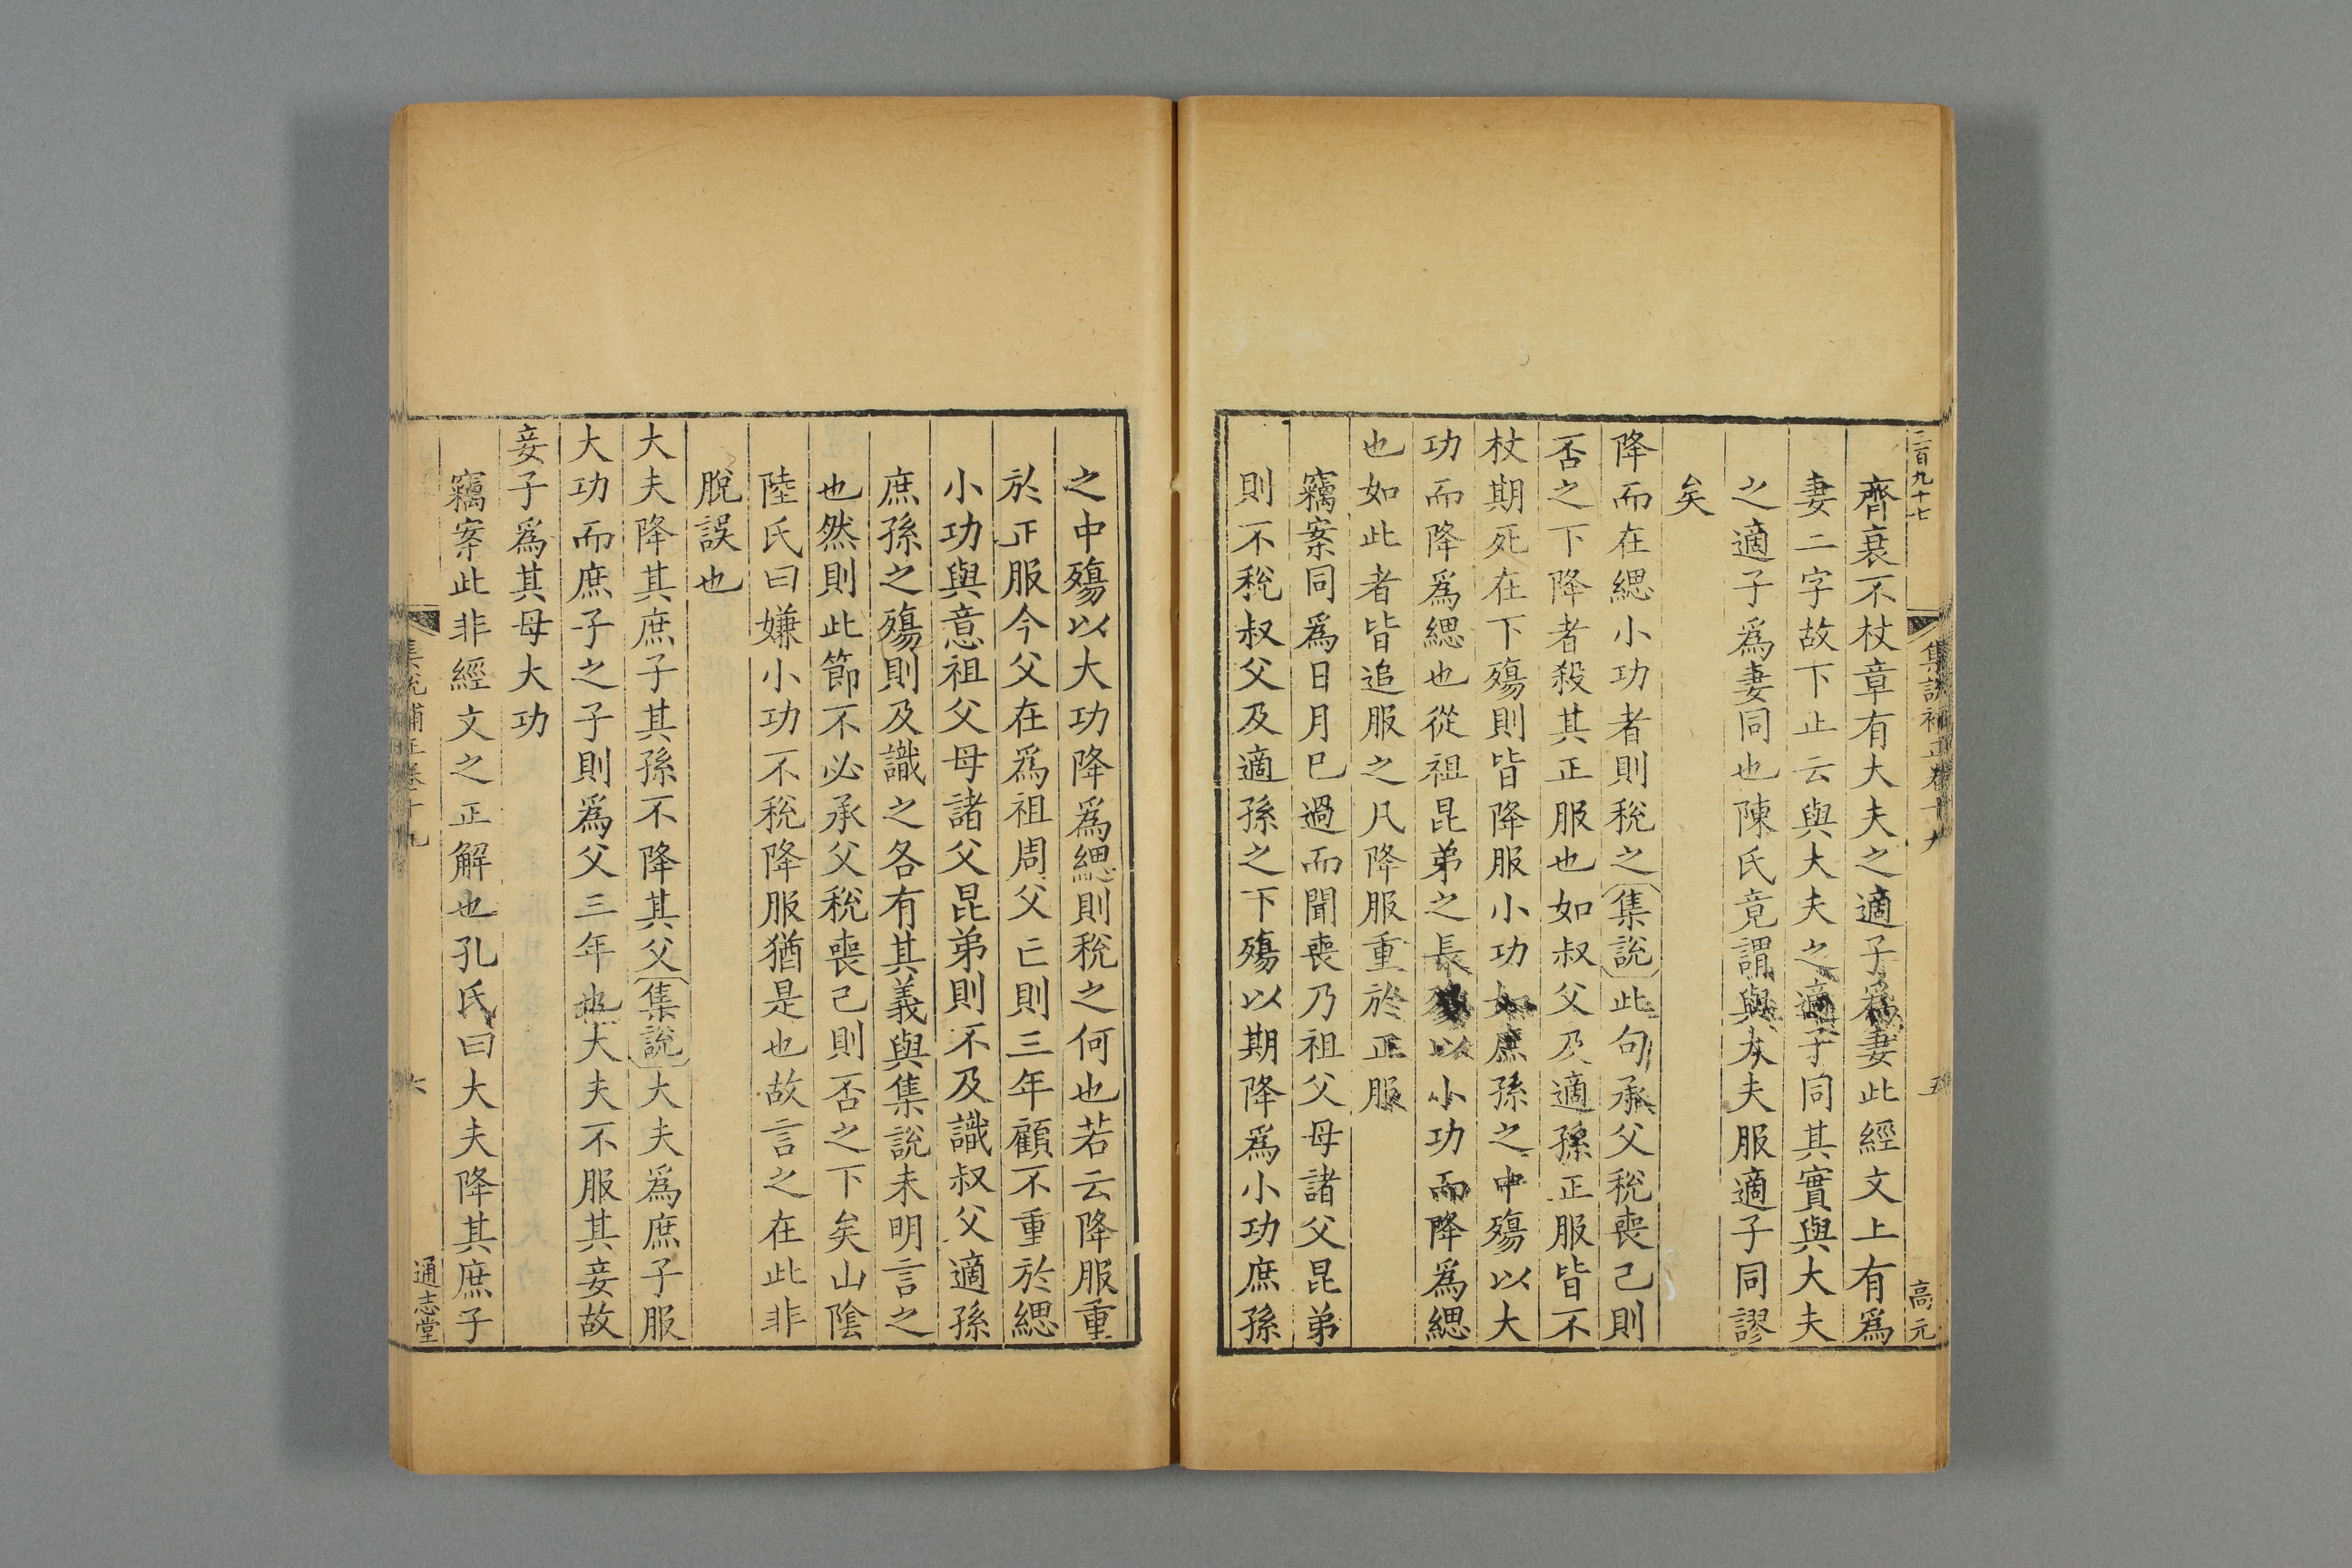 三百九十七
集說補正卷十九
五
高元
齊衰不杖章有大夫之適子爲妻此經文上有爲
妻二字故下止云與大夫之適子同其實與大夫
之適子爲妻同也陳氏竟謂與大夫服適子同謬
矣
降而在緦小功者則稅之集說此句承父稅喪己則
否之下降者殺其正服也如叔父及適孫正服皆不
杖期死在下殤則皆降服小功如庶孫之中殤以大
功而降爲緦也從祖昆弟之長殤以小功而降爲緦
也如此者皆追服之凡降服重於正服
竊案同爲日月已過而聞喪乃祖父母諸父昆弟
則不稅叔父及適孫之下殤以期降爲小功庶孫
之中殤以大功降爲緦則稅之何也若云降服重
於正服今父在爲祖周父亡則三年顧不重於緦
小功與意祖父母諸父昆弟則不及識叔父適孫
庶孫之殤則及識之各有其義與集說未明言之
也然則此節不必承父稅喪己則否之下矣山陰
陸氏曰嫌小功不稅降服猶是也故言之在此非
脫誤也
大夫降其庶子其孫不降其父集說大夫爲庶子服
大功而庶子之子則爲父三年也大夫不服其妾故
妾子爲其母大功
竊案此非經文之正解也孔氏曰大夫降其庶子
集說補正卷十九
六
通志堂